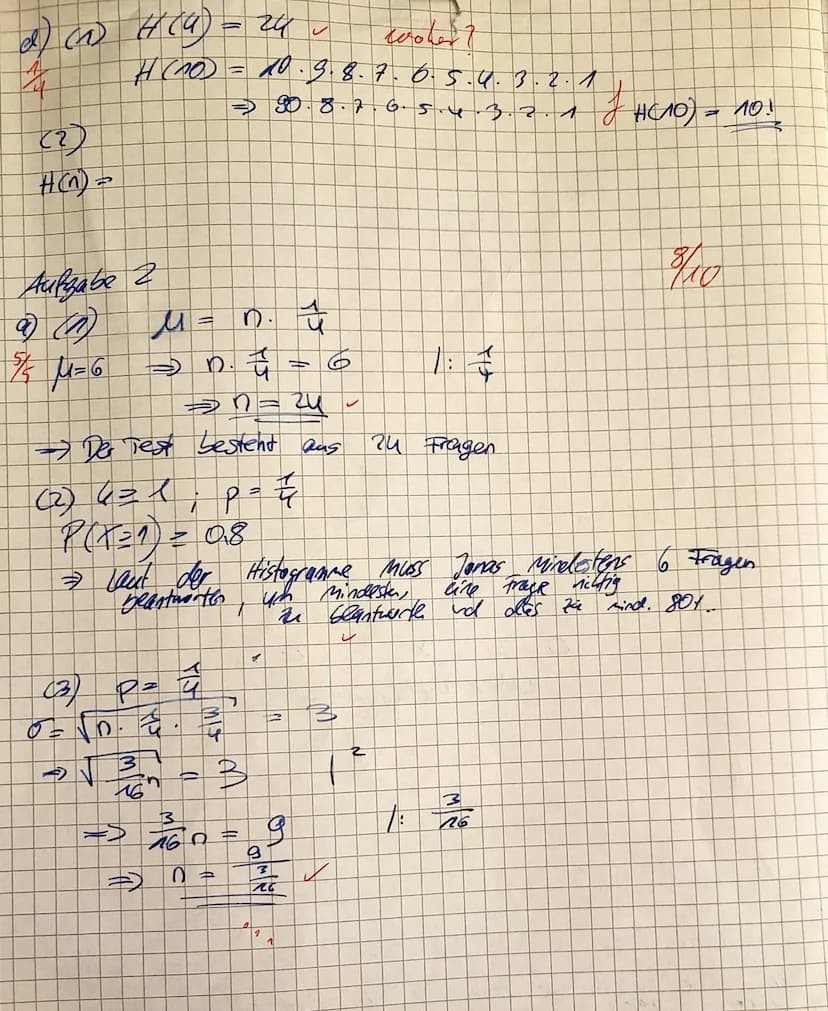 d) (1) H(4) = 24 ✓ woher?
1/4 H(10) = 10 · 9 · 8 · 7 · 6 · 5 · 4 · 3 · 2 · 1
⇒ 90 · 8 · 7 · 6 · 5 · 4 · 3 · 2 · 1 f H(10) = 10!
(2)
H(n) =
8/10
Aufgabe 2
a) (1) μ = n · 1/4
5/5 μ=6 ⇒ n · 1/4 = 6 |: 1/4
⇒ n = 24 ✓
→ Der Test besteht aus 24 Fragen
(2) k≥1 ; p = 1/4
P(X≥1) ≥ 0.8
⇒ Laut der Histogramme muss Jonas mindestens 6 Fragen
beantworten, um mindestens eine Frage richtig
zu beantworten und dies zu mind. 80%.
✓
(3) p = 1/4
σ = √(n · 1/4 · 3/4) = 3
⇒ √(3/16 n) = 3 |²
⇒ 3/16 n = 9 |: 3/16
⇒ n = 9/(3/16) ✓